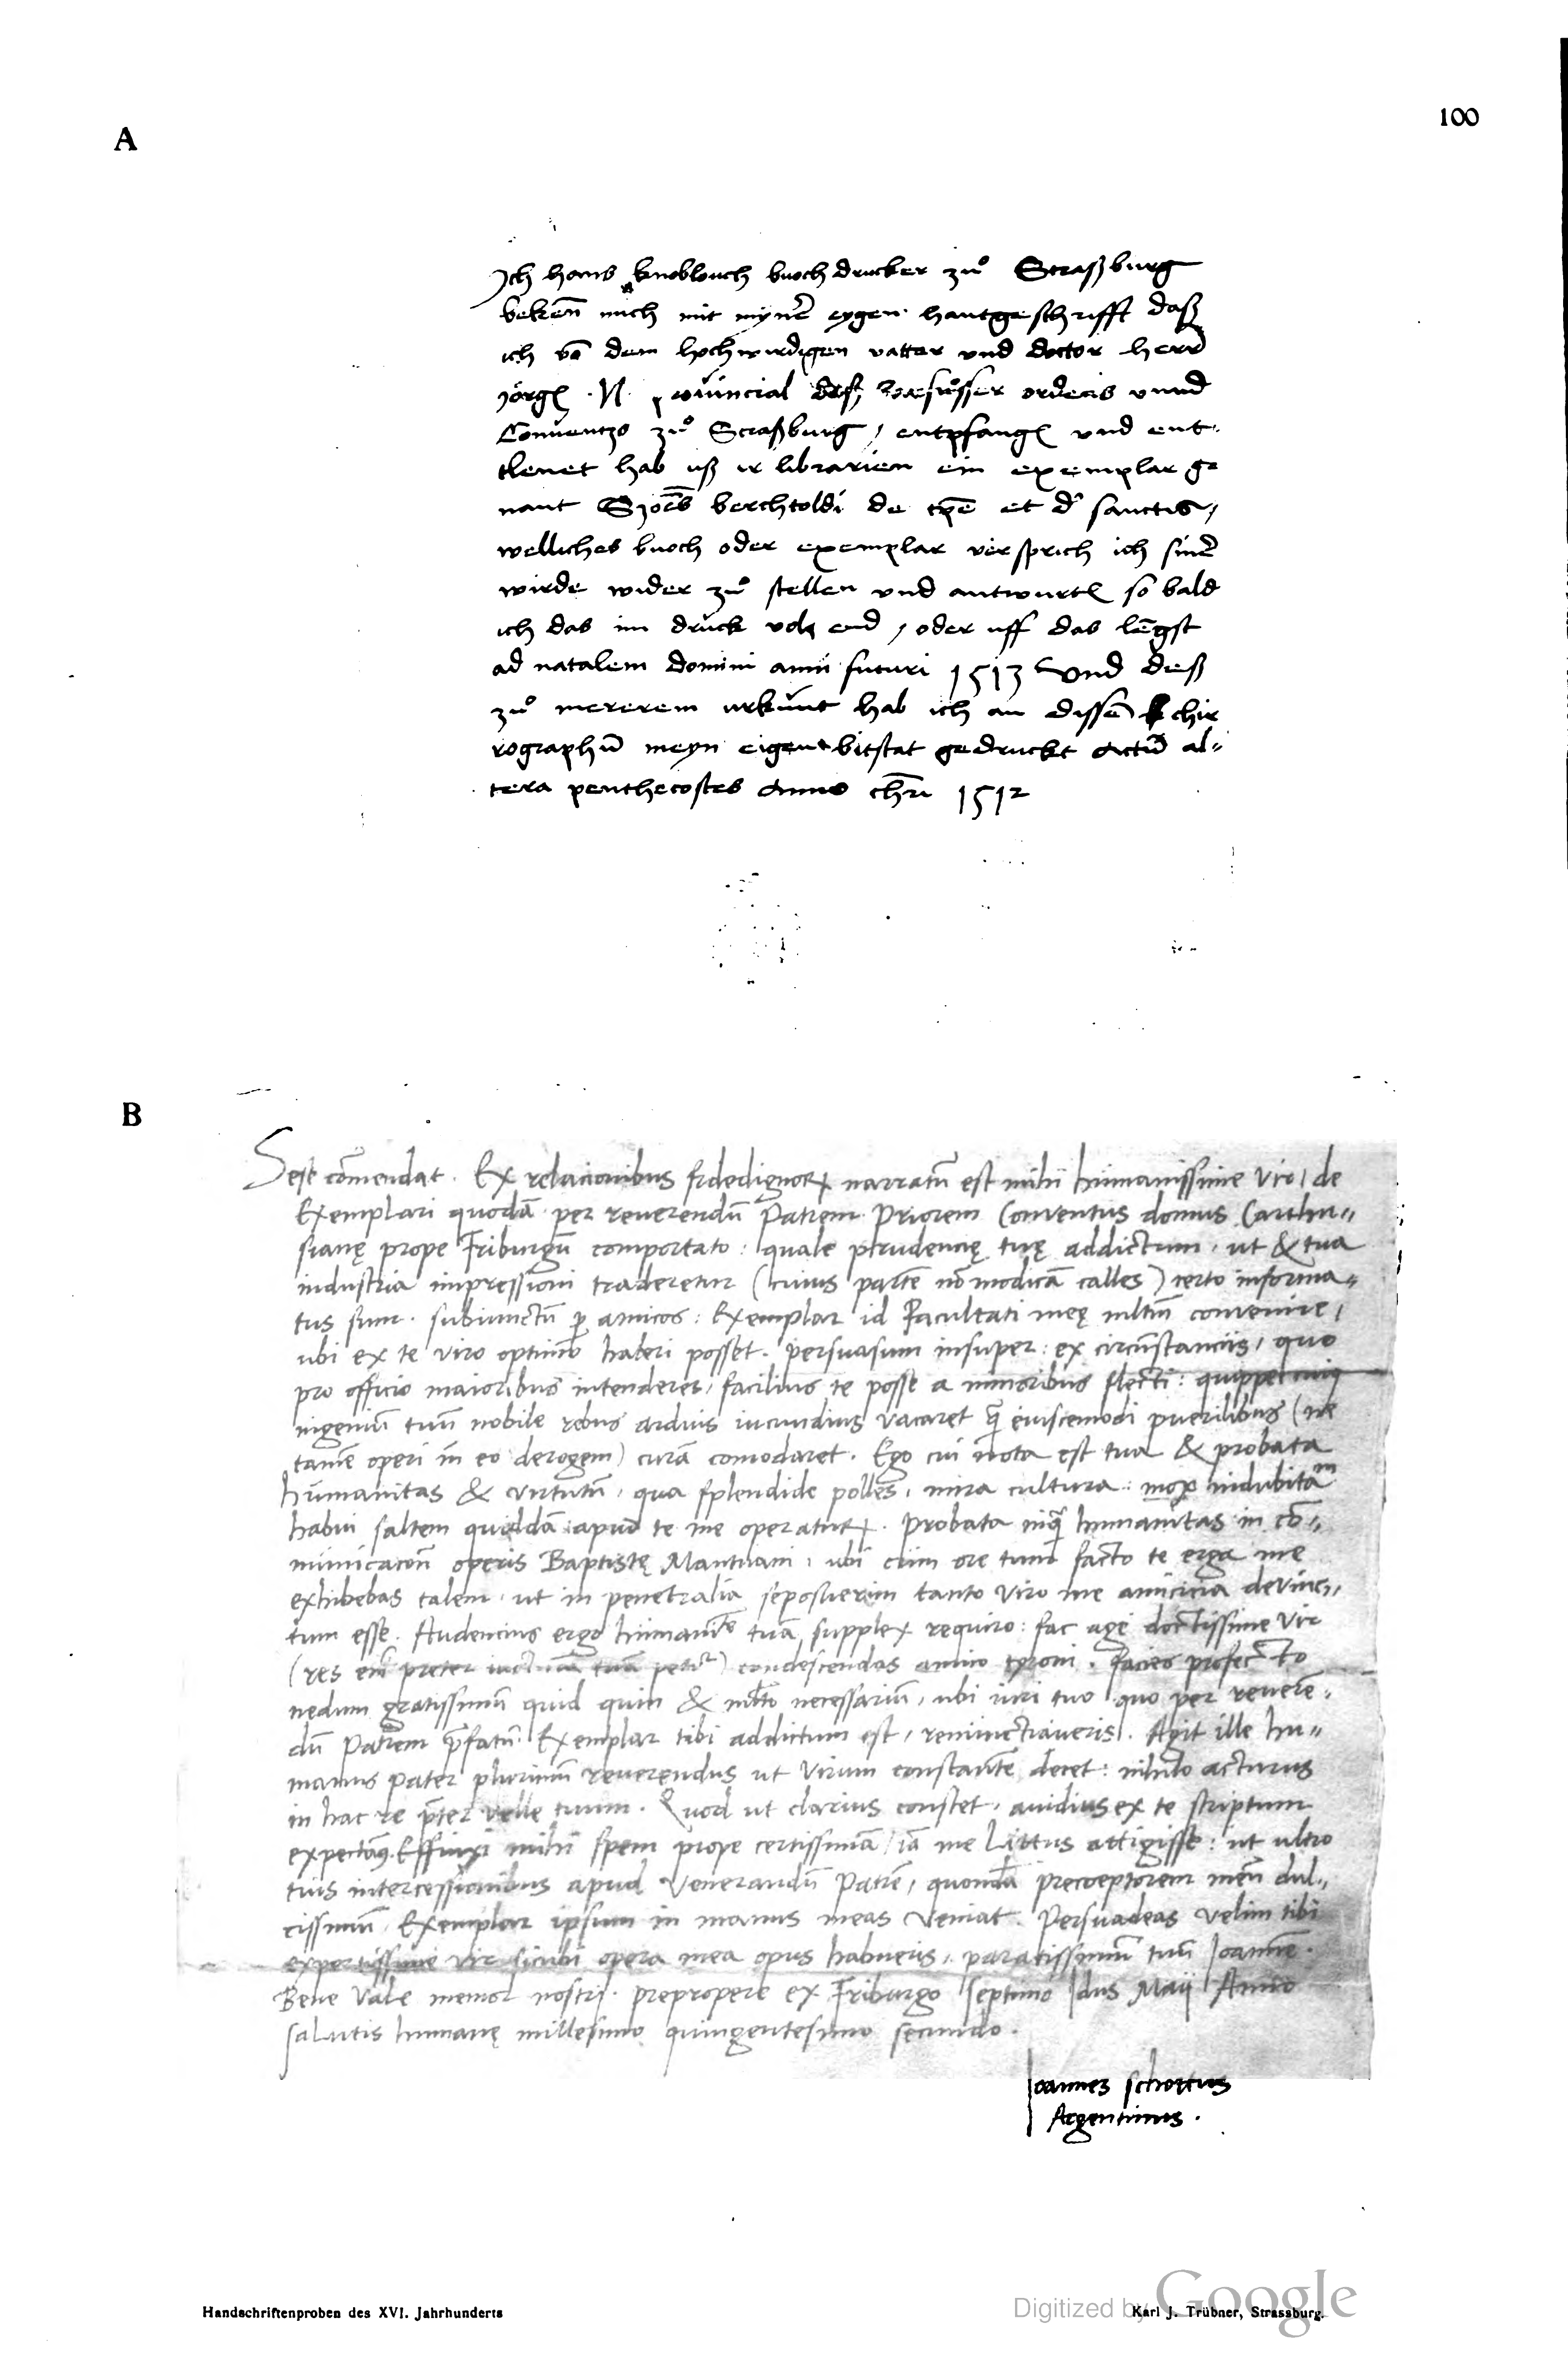 100
A
Ich hans knoblouch buochdrucker zuͦ Straßburg
beken̄ mich mit mynē eygen hantgeschrifft daß
ich vō dem hochwirdigen vatter und doctor herr
Jörgē .N. provincial deß barfuͦsser ordens vnnd
Conventzs zuͦ Straßburg / entpfangē vnd ent-
tlenet hab uß ir librarien ein exemplar ge
nant Smōes berchtoldi de tp̄e et d' sanctis /
welliches buoch oder exemplar versprich ich sinē
wirde wider zuͦ stellen vnd antwurtē so bald
ich das im druck vol end / oder uff das lēgst
ad natalem domini anni futuri 1513 Vnd deß
zuͦ mererem urkunt hab ich an dissē chir
rographū meyn eigen bitstat gedruckt Actū al-
tera penthecostes Anno chr̄i 1512
B
Sese cōmendat. Ex relacionibus fidedignorꝝ narratū est mihi humanissime vir / de
Exemplari quodā per reuerendū Patrem Priorem Conventus domus Carthu-
sianę prope Friburgū comportato: quale prudencię tuę addictum, ut & tua
industria impressioni traderetur (cuius partē nō modicā calles) certo informa-
tus sum. subiunctū p̄ amicos: Exemplar id Facultati meę mltm̄ convenire /
ubi ex te viro optimo haberi posset. persuasum insuper: ex circūstanciis, quo
pro officio maioribus intenderes, facilius te posse a minoribus flecti: quippe cuiꝗ
ingeniū tuū nobile rebus arduis iucundius vacaret qͣ̄ eiuscemodi puerilibus (ne
tamē operi in eo derogem) curā comodaret. Ego cui nota est tua & probata
humanitas & virtutū, qua splendide polles, mira cultura: mox indubitaᵐ
habui saltem quiddā apud te me operaturꝝ. Probata inqͣ̄ humanitas in cō-
municacōn̄ operis Baptistę Mantuani, ubi cum ore tum facto te erga me
exhibebas talem, ut in penetralia seposuerim tanto viro me amicicia devinc-
tum esse. Audencius ergo humanitē tuā supplex requiro: fac age doctissime vir
(res en̄ preter iacturā tuā petitʳ) condescendas animo tyroni. Facies profecto
nedum gratissimū quid quin & mlto necessariū, ubi iuri tuo quo per reuerē-
dū Patrem p̄fatū Exemplar tibi addictum est, renunctiaueris. Agit ille hu-
manus pater plurimū reuerendus ut virum constantē decet: nihilo acturus
in hac re p̄ter velle tuum. Quod ut clarius constet, auidius ex te scriptum
expectamꝰ. Effinxi mihi spem prope certissimā / iā me Littus attigisse: ut ultro
tuis intercessionibus apud Venerandū Patrē, quondā preceptorem meū dul-
cissimū Exemplar ipsum in manus meas veniat. Persuadeas velim tibi
expertissime vir sicubi opera mea opus habueris, paratissimū tuū Joannē.
Bene Vale memor nostri. prepropere ex Friburgo septimo Idus Maij Anno
salutis humanę millesimo quingentesimo secundo.
Joannes schottus
Argentinus.
Handschriftenproben des XVI. Jahrhunderts
Digitized by Google
Karl J. Trübner, Strassburg.